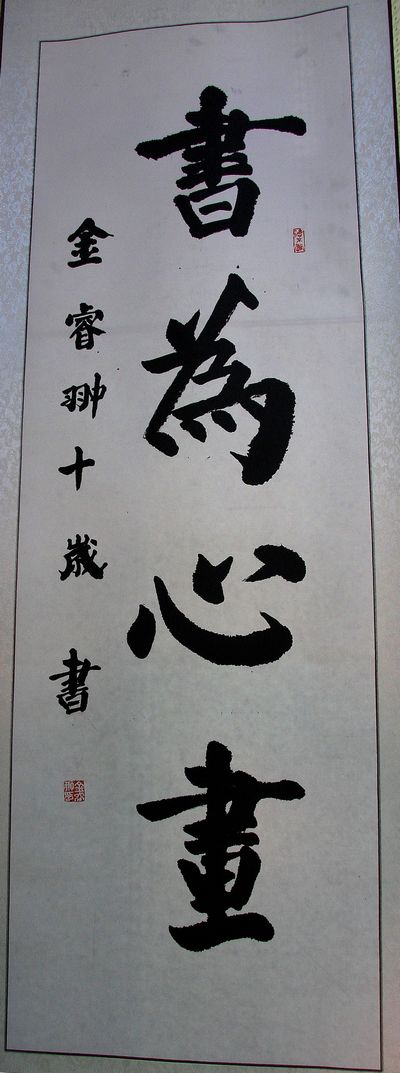 書為心畫
金睿翀十歲書